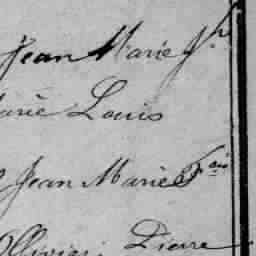 Jean Marie Jh
Marie Louis
Jean Marie Fois
Ollivier Pierre